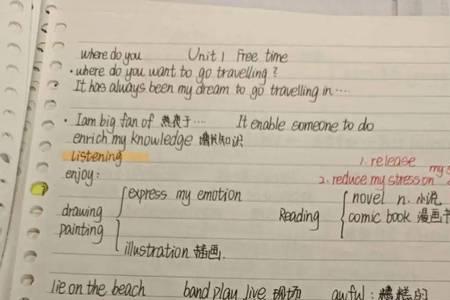 where do you Unit 1 Free time
· where do you want to go travelling?
It has always been my dream to go travelling in ····
· I am big fan of 热衷于··· It enable someone to do
enrich my knowledge 增长知识
Listening
1. release my s
enjoy: 2. reduce my stress on
express my emotion novel n. 小说
drawing Reading comic book 漫画书
painting
illustration 插画.
lie on the beach band play live 现场 awful: 糟糕的